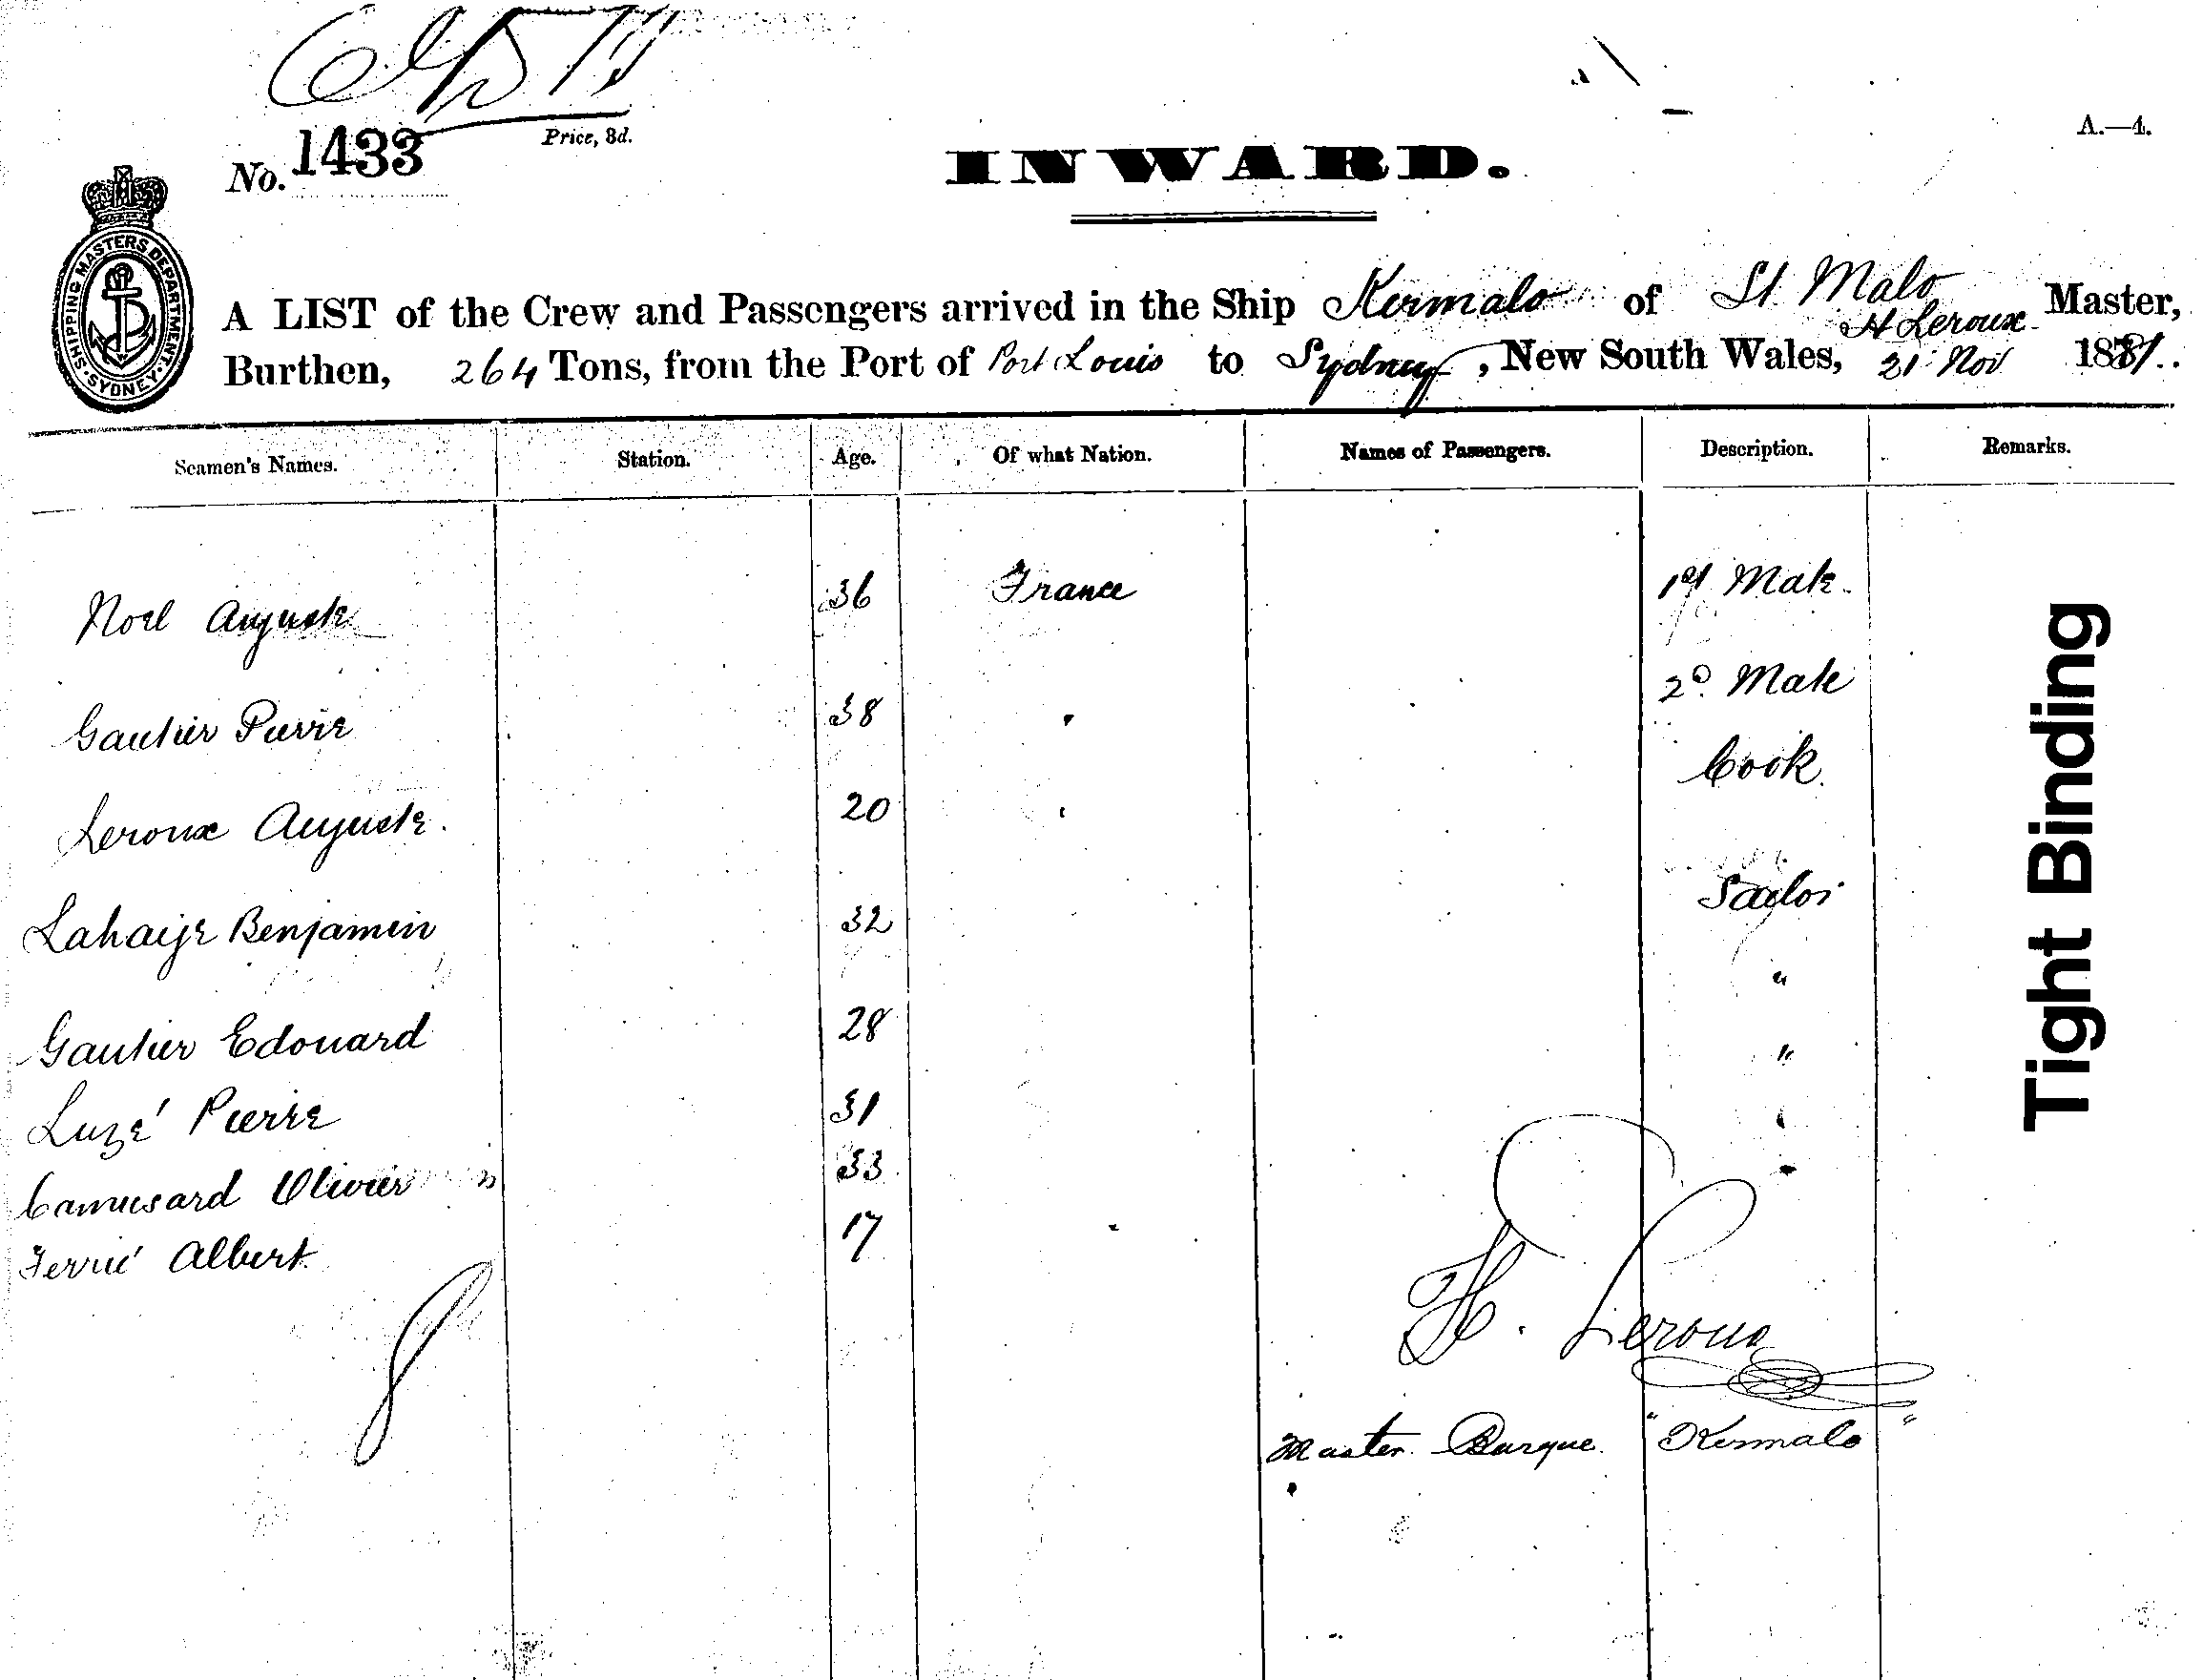 Price, 3d.
No. 1433
INWARD.
A.—4.
SHIPPING MASTERS DEPARTMENT. SYDNEY.
A LIST of the Crew and Passengers arrived in the Ship Kermalo of St Malo H Leroux Master,
Burthen, 264 Tons, from the Port of Port Louis to Sydney, New South Wales, 21 Nov 1881.
Seamen's Names. Station. Age. Of what Nation. Names of Passengers. Description. Remarks.
Noel Auguste 36 France 1st Mate.
Gautier Pierre 38 " 2d. Mate
Leroux Auguste. 20 " Cook.
Lahaije Benjamin 32 Sailor
Gautier Edouard 28 "
Luzé Pierre 31 "
Camusard Olivier 33 "
Ferrié Albert 17 " "
H. Leroux
Master. Barque. "Kermalo"
Tight Binding